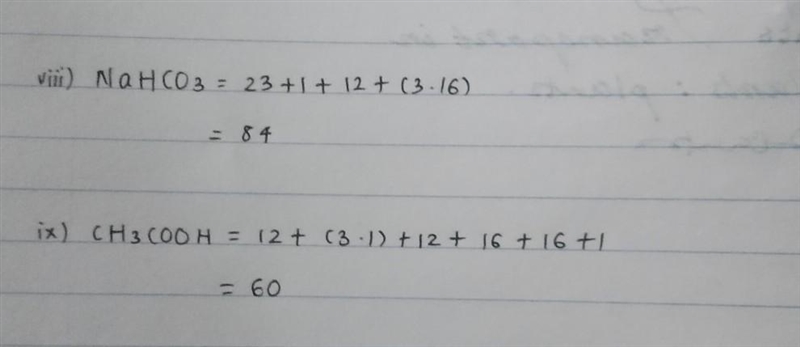 viii) NaHCO3 = 23 + 1 + 12 + (3.16)
= 84
ix) CH3COOH = 12 + (3.1) + 12 + 16 + 16 + 1
= 60